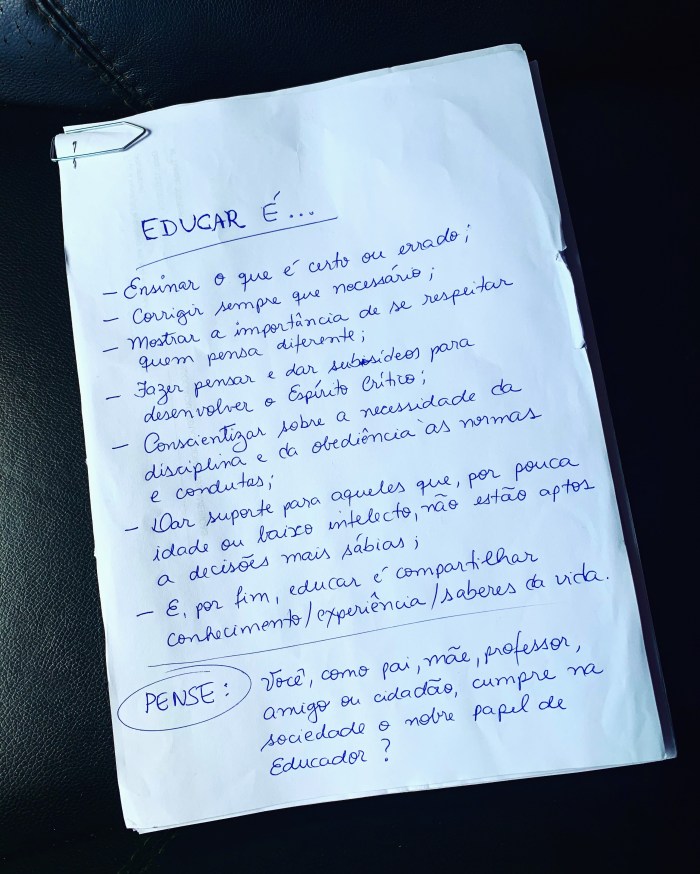 EDUCAR É...
- Ensinar o que é certo ou errado;
- Corrigir sempre que necessário;
- Mostrar a importância de se respeitar
quem pensa diferente;
- Fazer pensar e dar subsídeos para
desenvolver o Espírito Crítico;
- Conscientizar sobre a necessidade da
disciplina e da obediência às normas
e condutas;
- Dar suporte para aqueles que, por pouca
idade ou baixo intelecto, não estão aptos
a decisões mais sábias;
- E, por fim, educar é compartilhar
conhecimento/experiência/saberes da vida.
PENSE: Você, como pai, mãe, professor,
amigo ou cidadão, cumpre na
sociedade o nobre papel de
Educador?